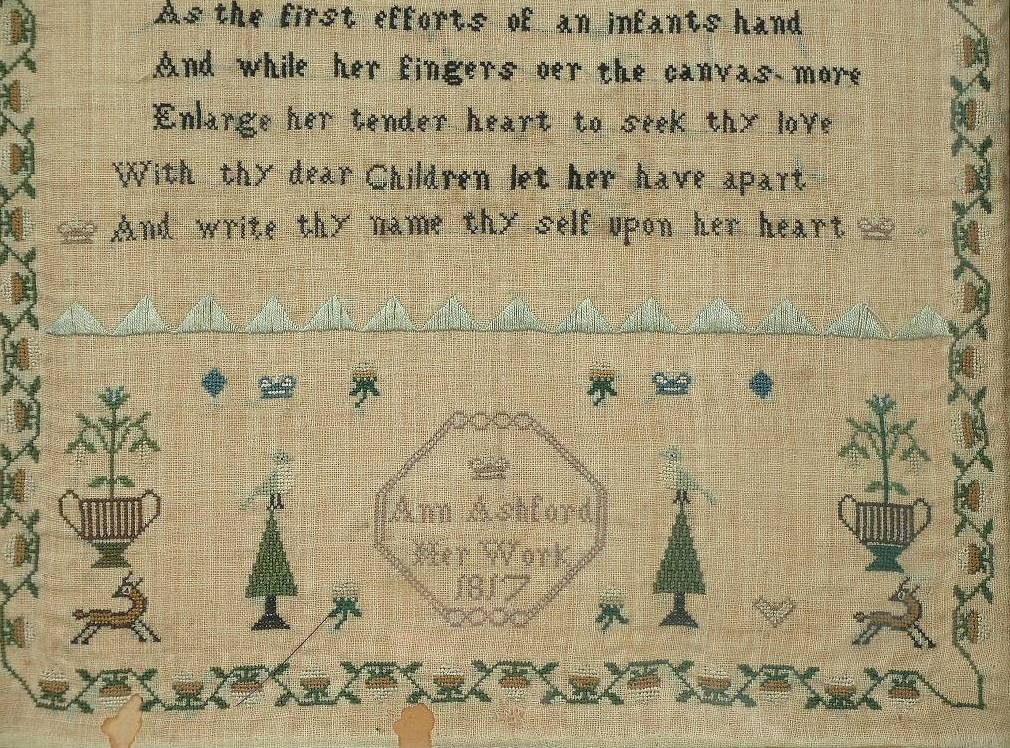 As the first efforts of an infants hand
And while her fingers oer the canvas more
Enlarge her tender heart to seek thy love
With thy dear Children let her have apart
And write thy name thy self upon her heart
Ann Ashford
Her Work
1817